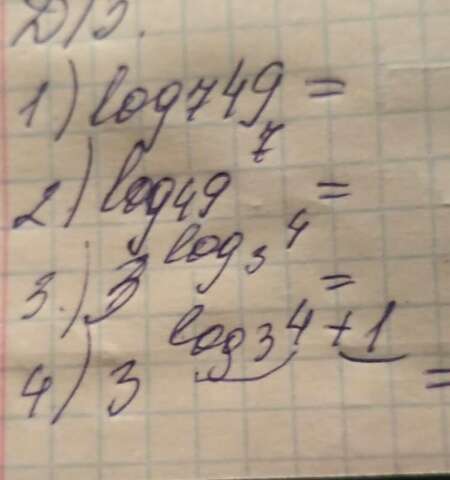 Д/З.
1) log₇49 =
2) log₄₉7 =
3.) 3^log₃4 =
4) 3^log₃4+1 =